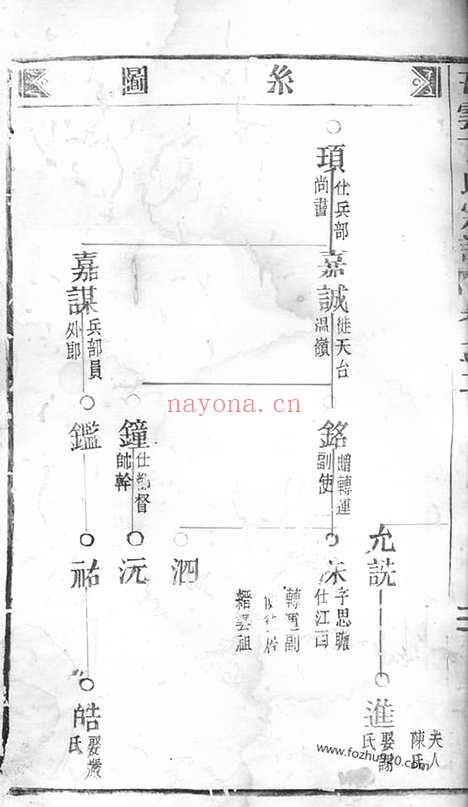 系圖
頊
仕兵部
尚書
嘉誠
徙天台
溫嶺
嘉謀
兵部員
外郎
銘
贈轉運
副使
鐘
仕都督
帥幹
鑑
允詵
字思
仕江西
轉運副
縉雲祖
泗
沅
祐
進
夫人
陳氏
娶謝
氏
皓
娶嚴
氏
nayona.cn
www.fozhu920.com